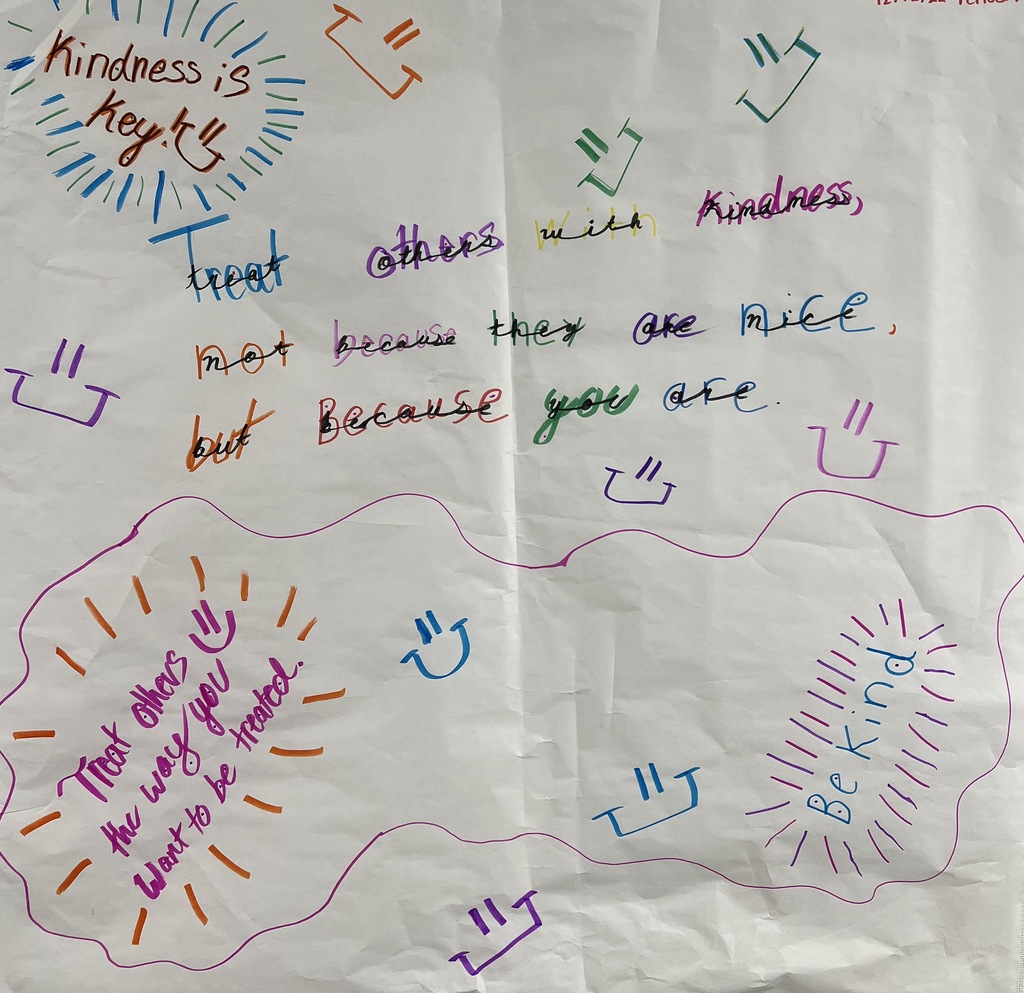 Kindness is
Key!
Treat others with kindness,
not because they are nice,
but Because you are.
Treat others
the way you
want to be treated.
Be Kind